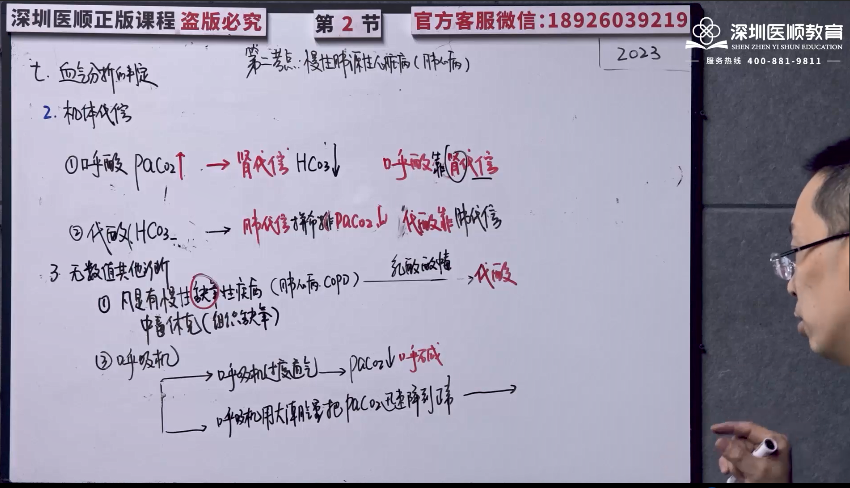 深圳医顺正版课程 盗版必究
第 2 节
官方客服微信:18926039219
深圳医顺教育
SHEN ZHEN YI SHUN EDUCATION
服务热线 400-881-9811
第二考点:慢性肺源性心脏病(肺心病)
2023
七.血气分析的判定
2.机体代偿
①呼酸 PaCO2↑ → 肾代偿 HCO3↓ 呼酸靠肾代偿
②代酸(HCO3- → 肺代偿拼命排PaCO2↓ 代酸靠肺代偿
3.无数值其他诊断
①凡是有慢性缺氧性疾病(肺心病.COPD) 乳酸酸增 → 代酸
中毒休克(组织缺氧)
②呼吸机
→呼吸机过度通气→PaCO2↓呼碱
→呼吸机用大潮气量把PaCO2迅速降到正常 →